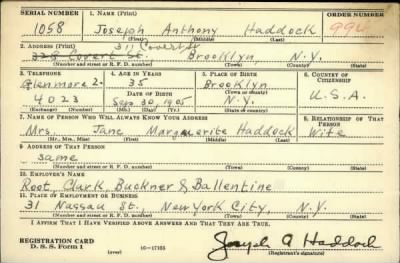 SERIAL NUMBER 1. NAME (Print) ORDER NUMBER
1058 Joseph Anthony Haddock
(First) (Middle) (Last)
2. ADDRESS (Print) 311 Covert St
Covert St. Brooklyn, N.Y.
(Number and street or R. F. D. number) (Town) (County) (State)
3. TELEPHONE 4. AGE IN YEARS 5. PLACE OF BIRTH 6. COUNTRY OF CITIZENSHIP
Glenmore 2- 35 Brooklyn
DATE OF BIRTH (Town or county)
4023 Sep. 30, 1905 N.Y. U.S.A.
(Exchange) (Number) (Mo.) (Day) (Yr.) (State or country)
7. NAME OF PERSON WHO WILL ALWAYS KNOW YOUR ADDRESS 8. RELATIONSHIP OF THAT PERSON
Mrs. Jane Marguerite Haddock Wife
(Mr., Mrs., Miss) (First) (Middle) (Last)
9. ADDRESS OF THAT PERSON
same
(Number and street or R. F. D. number) (Town) (County) (State)
10. EMPLOYER'S NAME
Root, Clark, Buckner & Ballentine
11. PLACE OF EMPLOYMENT OR BUSINESS
31 Nassau St., New York City, N.Y.
(Number and street or R. F. D. number) (Town) (County) (State)
I AFFIRM THAT I HAVE VERIFIED ABOVE ANSWERS AND THAT THEY ARE TRUE.
REGISTRATION CARD
D. S. S. Form 1 (over) 16-17105 Joseph A Haddock
(Registrant's signature)